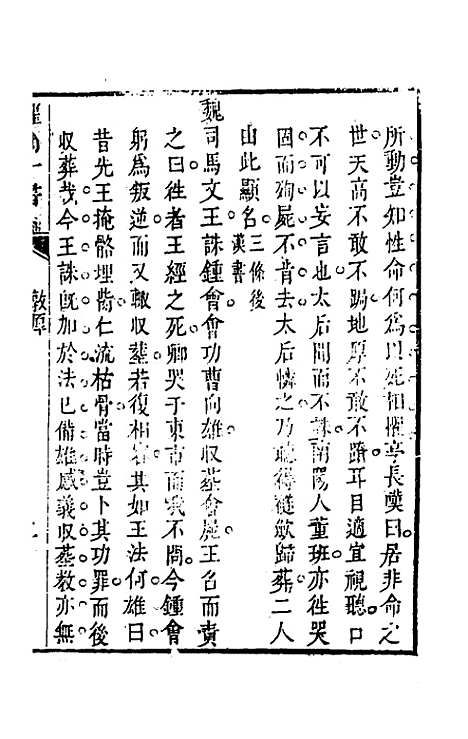 所動豈知性命何爲以死相懼亭長嘆曰居非命之
世天高不敢不跼地厚不敢不蹐耳目適宜視聽口
不可以妄言也太后聞而不誅南陽人董班亦徃哭
固而殉屍不肯去太后憐之乃聴得襚斂歸葬二人
由此顯名三條後漢書
魏司馬文王誅鍾會會功曹向雄収葬會屍王召而責
之曰徃者王經之死卿哭于東市而我不問今鍾會
躬爲叛逆而又輙収葬若復相容其如王法何雄曰
昔先王掩骼埋胔仁流枯骨當時豈卜其功罪而後
収葬哉今王誅旣加於法已備雄感義収葬敎亦無
敦厚